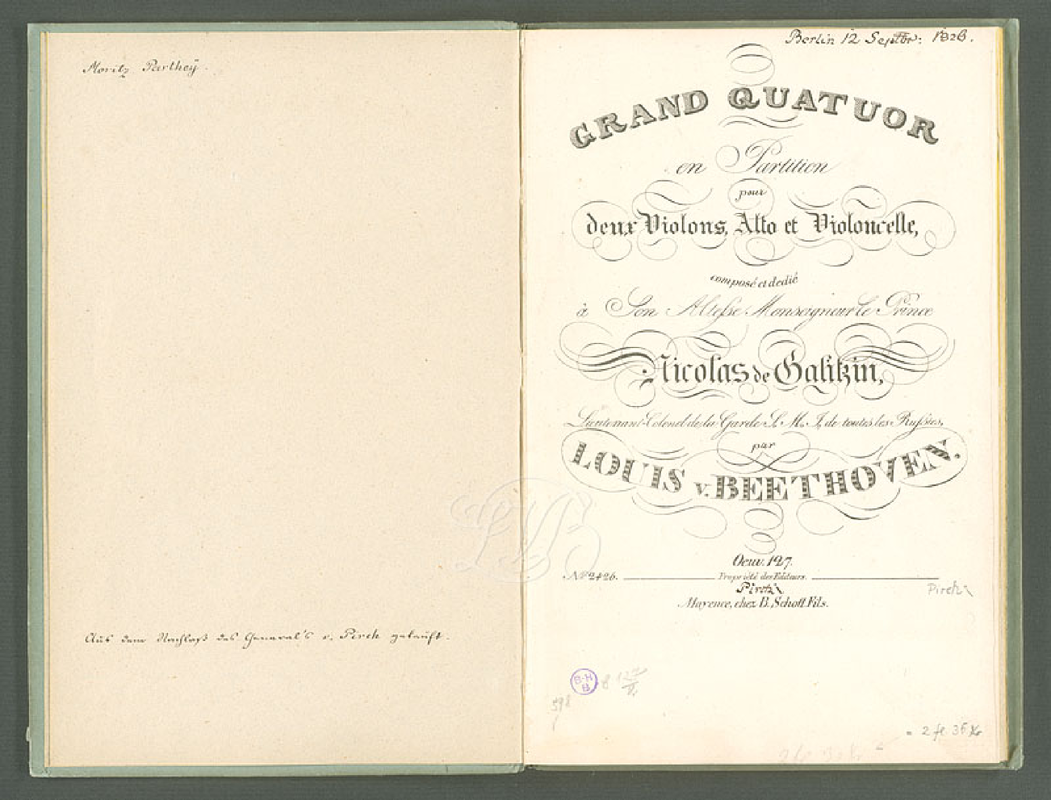 Moritz Parthey.
Aus dem Nachlaß des General's v. Pirch gekauft.
Berlin 12 Septbr: 1826.
GRAND QUATUOR
en Partition
pour
deux Violons, Alto et Violoncelle,
composé et dedié
à Son Altesse Monseigneur le Prince
Nicolas de Galitzin,
Lieutenant-Colonel de la Garde S. M. I. de toutes les Russies,
par
LOUIS v. BEETHOVEN.
Oeuv. 127.
No 2426. Propriété des Editeurs.
Pirch
Pirch
Mayence, chez B. Schott Fils.
B-H
B
= 2 fl. 36 Xr